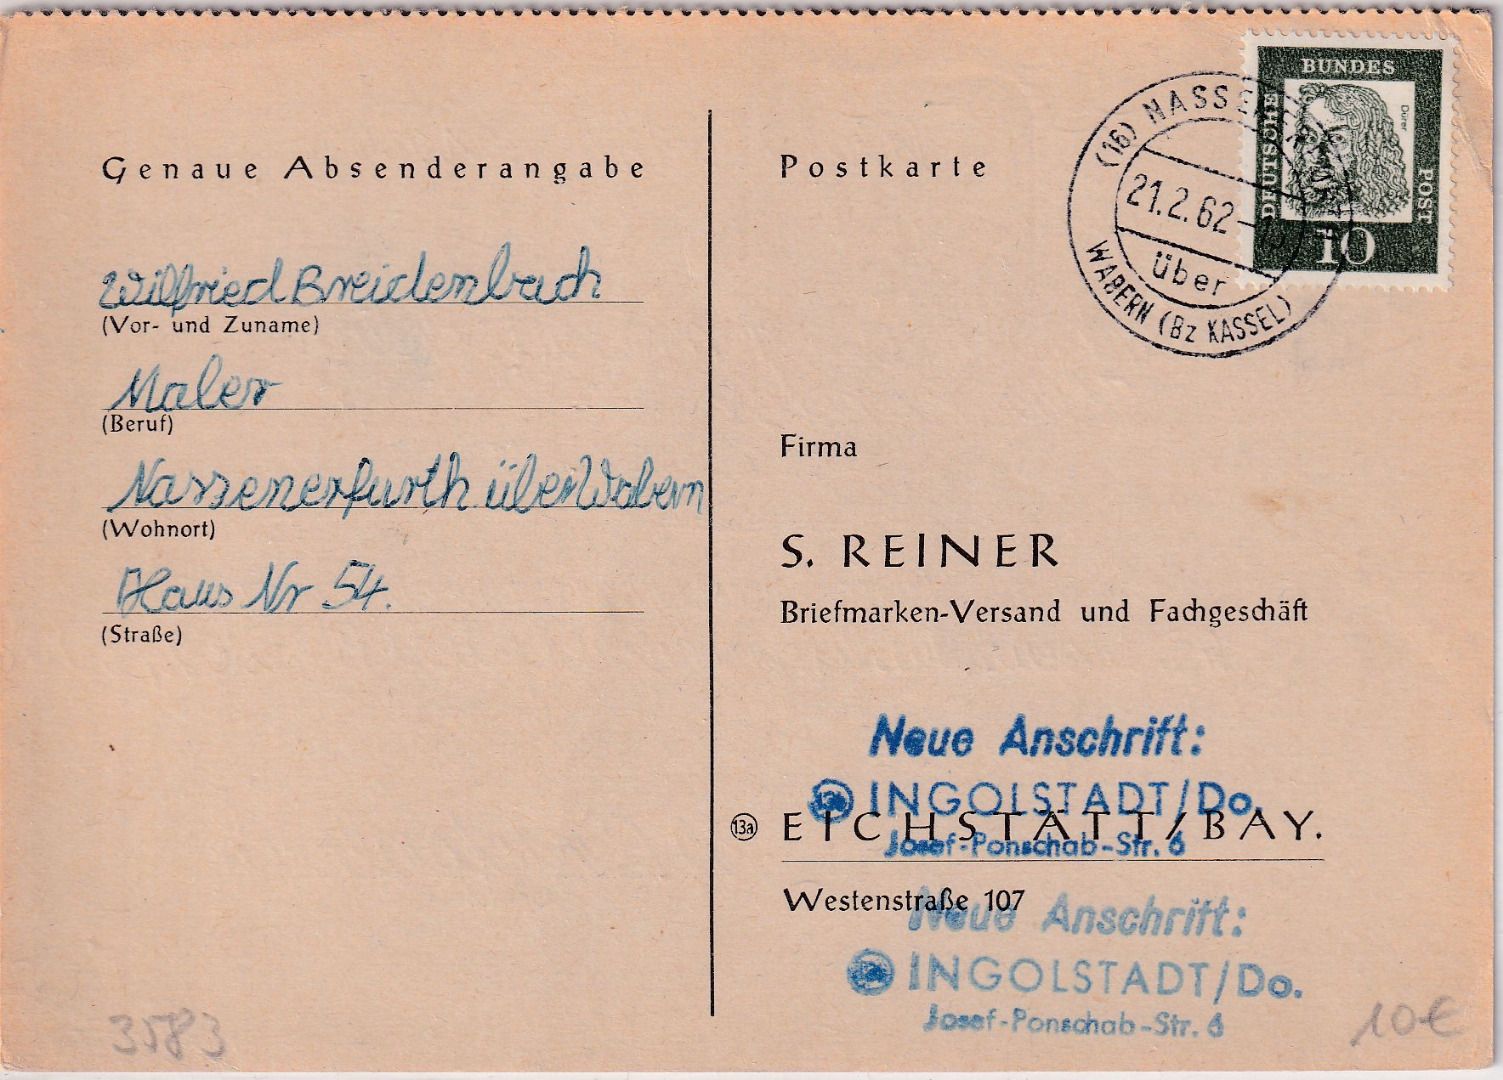 Genaue Absenderangabe
Wilfried Breidenbach
(Vor- und Zuname)
Maler
(Beruf)
Nassenerfurth über Wabern
(Wohnort)
Haus Nr 54.
(Straße)
3583
Postkarte
DEUTSCHE BUNDES POST
Dürer
10
(16) NASSENERFURTH
21.2.62
über
WABERN (Bz KASSEL)
Firma
S. REINER
Briefmarken-Versand und Fachgeschäft
Neue Anschrift:
13a INGOLSTADT/Do.
13a EICHSTÄTT/BAY.
Josef-Ponschab-Str. 6
Westenstraße 107
Neue Anschrift:
INGOLSTADT/Do.
Josef-Ponschab-Str. 6
10€